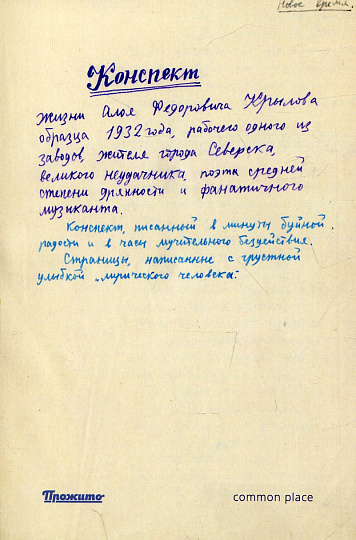 Новое время.
Конспект
жизни Алоя Федоровича Крылова
образца 1932 года, рабочего одного из
заводов, жителя города Северска,
великого неудачника, поэта средней
степени дрянности и фанатичного
музыканта.
Конспект, писанный в минуты буйной
радости и в часы мучительного бездействия.
Страницы, написанные с грустной
улыбкой "лирического человека".
Прожито
common place